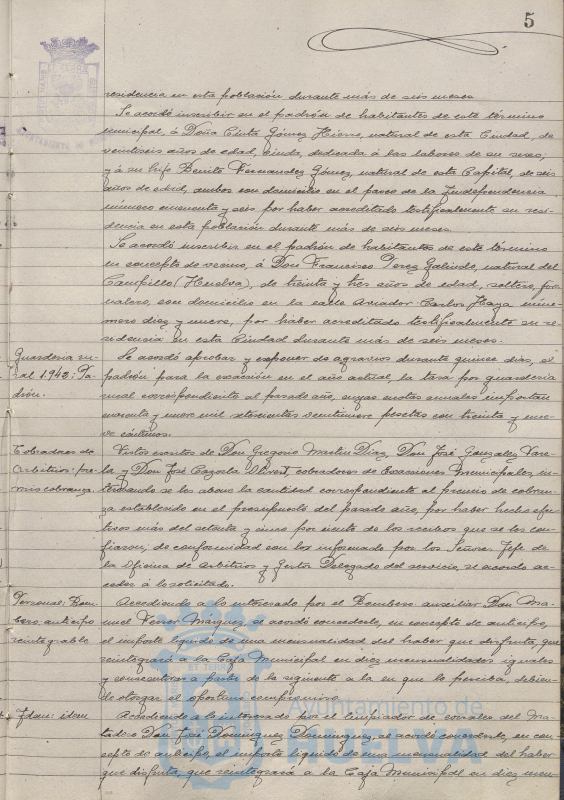 5
residencia en esta población durante más de seis meses
Se acordó inscribir en el padrón de habitantes de este término
municipal, á Doña Cinta Gómez Hierro, natural de esta Ciudad, de
veintiseis años de edad, viuda, dedicada á las labores de su sexo,
y á su hijo Benito Fernandez Gómez, natural de esta Capital, de seis
años de edad, ambos con domicilio en el paseo de la Independencia
número cincuenta y seis por haber acreditado testificalmente su resi-
dencia en esta población durante más de seis meses.
Se acordó inscribir en el padrón de habitantes de este término
en concepto de vecino, á Don Francisco Perez Galindo, natural del
Campillo (Huelva), de treinta y tres años de edad, soltero, jor-
nalero, con domicilio en la calle Aviador Carlos Haya núme-
mero diez y nueve, por haber acreditado testificalmente su re-
sidencia en esta Ciudad durante más de seis meses.
Guarderia ru-
ral 1.942: Pa-
drón.
Se acordó aprobar y exponer de agravios durante quince dias, el
padrón para la exacción en el año actual, la tasa por guarderia
rural correspondiente al pasado año, cuyas cuotas anuales importan
y nueve mil setecientas veintinueve pesetas con treinta y nue-
ve céntimos.
Cobradores de
Arbitrios: pre-
mio cobranza.
Vistos escritos de Don Gregorio Martin Diaz, Don José Gonzalez Vare-
la y Don José Cazorla, cobradores de Exacciones Municipales, in-
teresando se les abone la cantidad correspondiente al premio de cobran-
za establecido en el presupuesto del pasado año, por haber hecho efec-
tivos más del setenta y cinco por ciento de los recibos que se les con-
fiaron, de conformidad con los informado por los Señores Jefe de
la Oficina de Arbitrios y Gestor Delegado del servicio, se acordó ac-
ceder á lo solicitado.
Personal: Bom-
bero: anticipo
reintegrable
Accediendo á lo interesado por el Bombero auxiliar Don Ma-
nuel Ferrer Marquez se acordó concederle, en concepto de anticipo,
el importe líquido de una mensualidad del haber que disfruta, que
reintegrará á la Caja Municipal en diez mensualidades iguales
y consecutivas á partir de la siguiente á la en que lo perciba, debien-
do otorgar el oportuno compromiso.
Idem: idem
Accediendo á lo interesado por el limpiador de corrales del Ma-
tadero Don José Dominguez Dominguez, se acordó concederle, en con-
cepto de anticipo, el importe líquido de una mensualidad del haber
que disfruta, que reintegrará á la Caja Municipal en diez men-
Ayuntamiento de
HUELVA